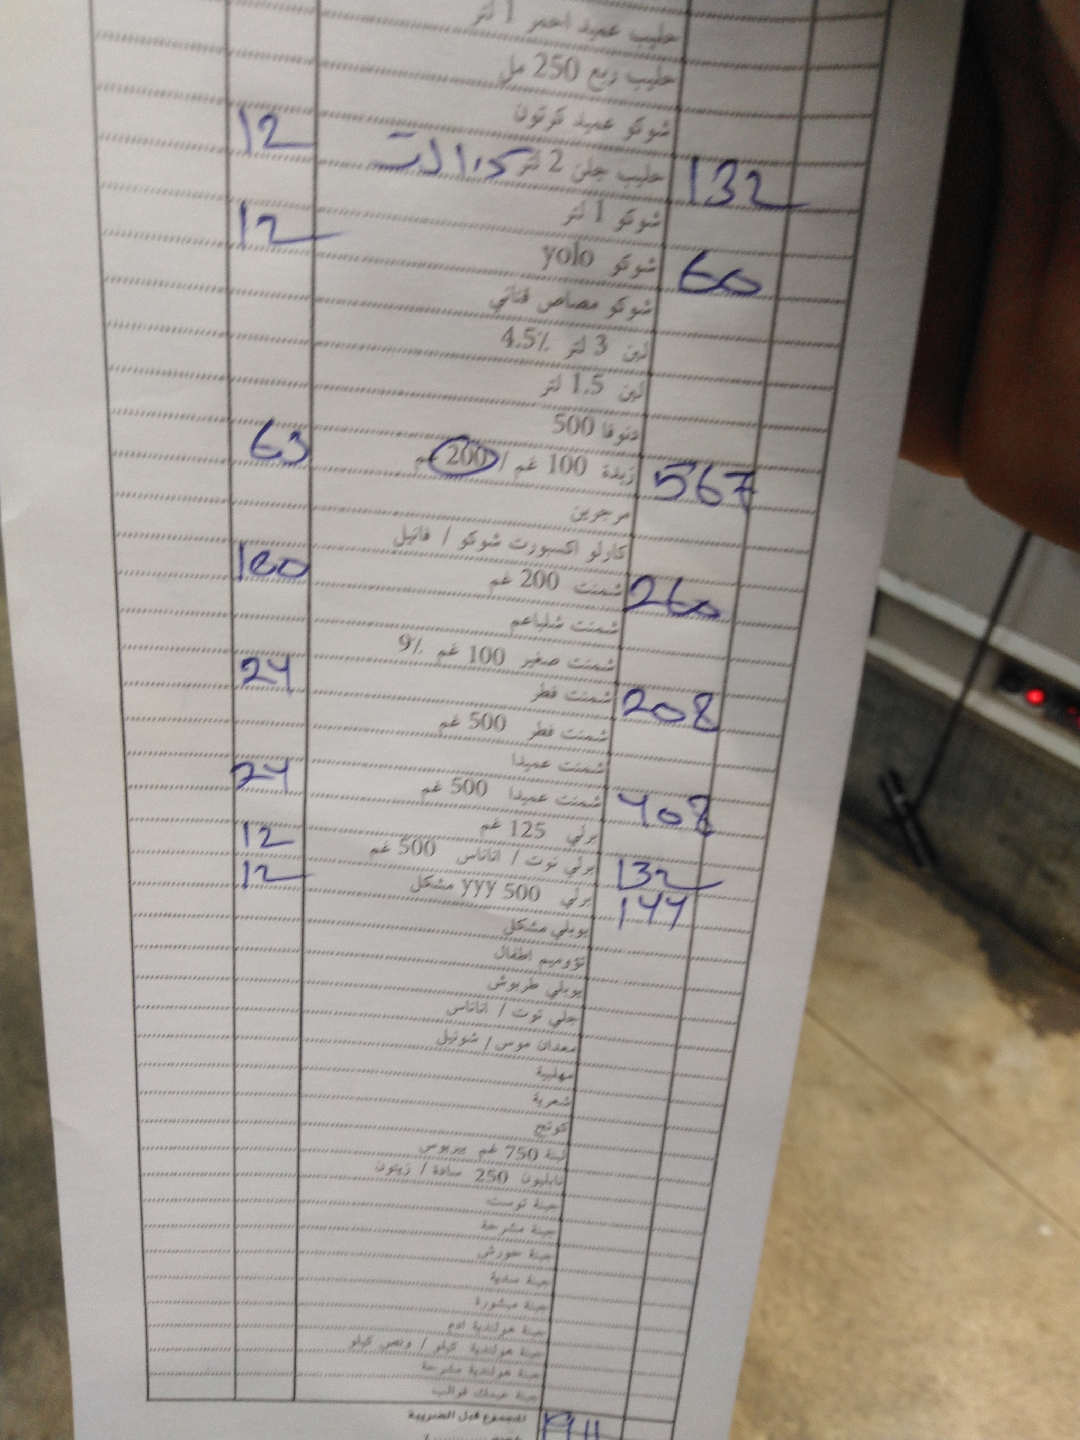 حليب عميد احمر 1 لتر
حليب ربع 250 مل
شوكو عميد كرتون
12 حليب جلن 2 لتر 132
شوكو 1 لتر
12 شوكو yolo 60
شوكو مصاص قناني
لبن 3 لتر 4.5٪
لبن 1.5 لتر
دنوفا 500
63 زبدة 100 غم / 200 غم 567
مرجرين
كارلو اكسبورت شوكو / فانيل
شمنت 200 غم 260
شمنت شلباعم
شمنت صغير 100 غم 9٪
24 شمنت فطر 208
شمنت فطر 500 غم
شمنت عميدا
24 شمنت عميدا 500 غم 408
برلي 125 غم
12 برلي توت / اناناس 500 غم 132
12 برلي 500 yyy مشكل 144
يوبلي مشكل
تؤوميم اطفال
يوبلي طربوش
جلي توت / اناناس
معدان موس / شونيل
مهلبية
شعرية
كوتج
لبنة 750 غم بيريوس
نابليون 250 سادة / زيتون
جبنة توست
جبنة مشرحة
جبنة حورش
جبنة مبشورة
جبنة هولندية ادم
جبنة هولندية كيلو / ونص كيلو
جبنة هولندية مشرحة
المجموع قبل الضريبة